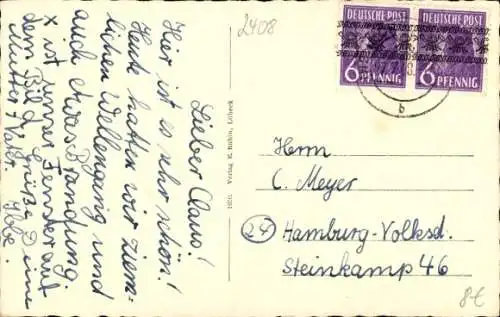 2408
DEUTSCHE POST
DEUTSCHE POST
6 PFENNIG
6 PFENNIG
b
Lieber Claus!
Hier ist es sehr schön!
Heute hatten wir ziem-
lichen Wellengang und
auch etwas Brandung
x ist unser Fenster auf
dem Bild. Grüße Deine
Mutter + Vater.
Verlag E. Lübeck
Herrn
C. Meyer
(24) Hamburg-Volksd.
Steinkamp 46
8€